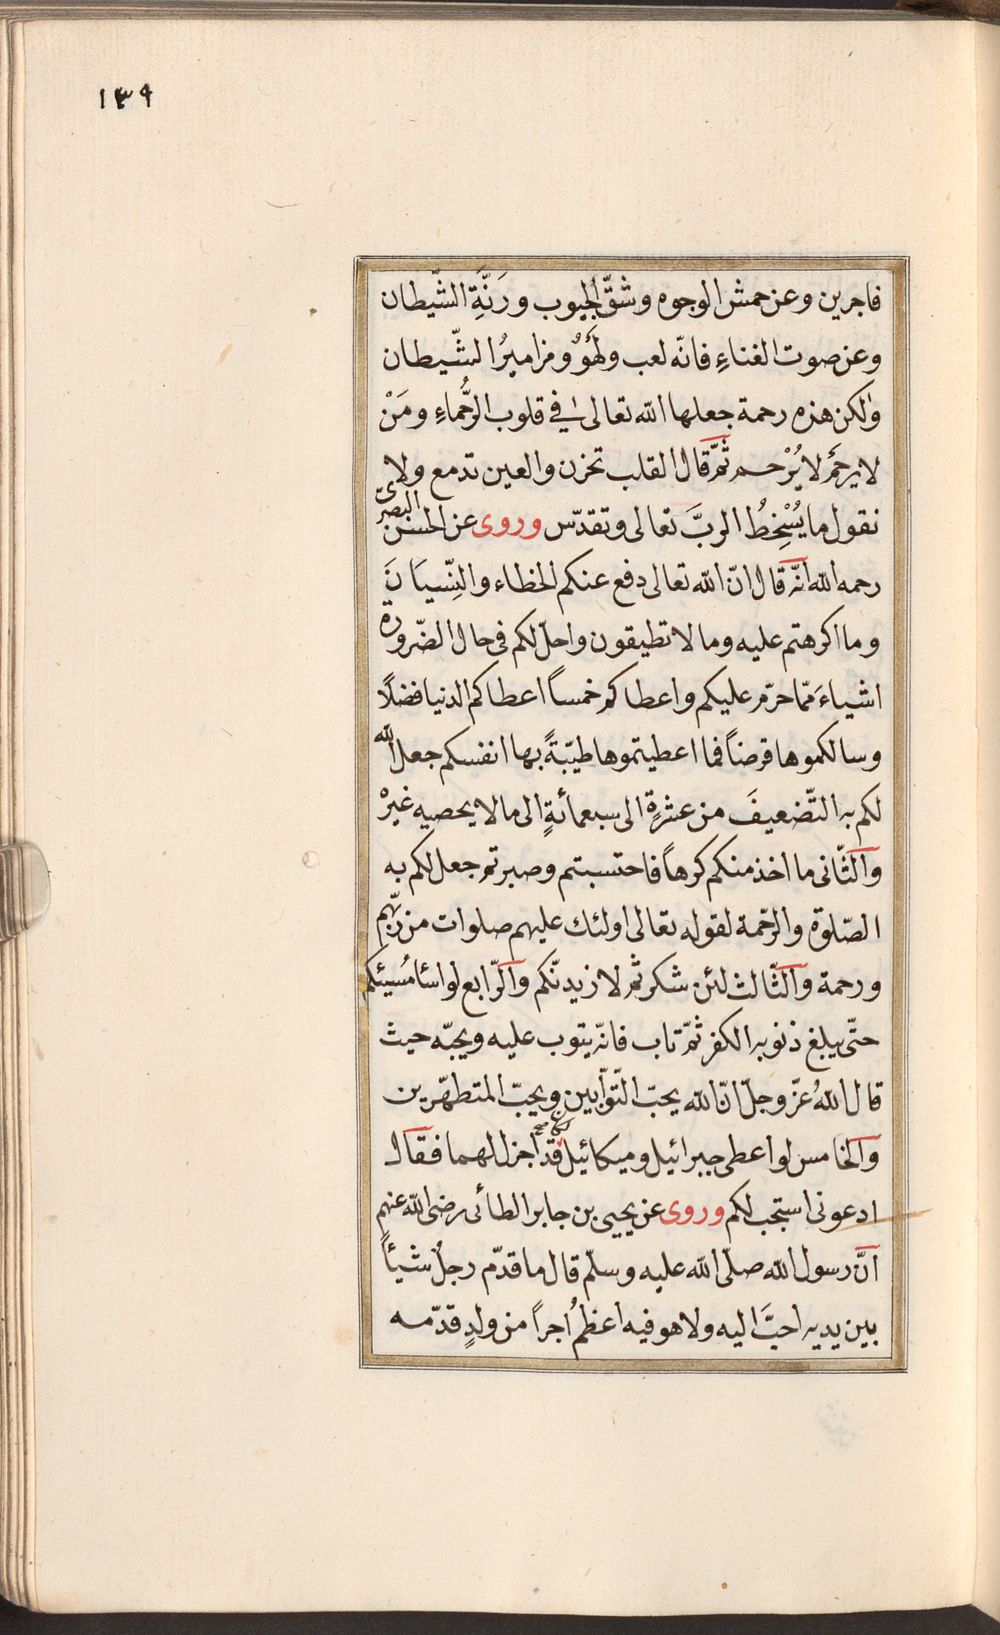 ١٣٩
فاجرين وعن خمش الوجوه وشقّ الجيوب ورَنَّةِ الشّيطان
وعن صوت الغناءِ فانّه لعب ولَهْوٌ ومزاميرُ الشّيطان
ولكن هذه رحمة جعلها الله تعالى فى قلوب الرُّحماءِ ومَنْ
لا يرحَم لا يُرْحم ثمّ قال القلب تحزن والعين تدمع ولا
نقول ما يُسْخِطُ الربَّ تعالى وتقدّس وروى عن الحسن البصرىّ
رحمه الله انّه قال انّ الله تعالى دفع عنكم الخطاء والنِّسيَانَ
وما اكرهتم عليه وما لا تطيقون واحلّ لكم فى حال الضّرورة
اشياءَ ممّا حرّم عليكم واعطاكم خمساً اعطاكم الدنيا فضلًا
وسالكموها قرضاً فما اعطيتموها طيّبةً بها انفسكم جعل الله
لكم به التّضعيفَ من عشرةٍ الى سبعمائةٍ الى ما لا يحصيه غيرْ
والثّانى ما اخذ منكم كرهاً فاحتسبتم وصبرتم جعل لكم به
الصّلوة والرحّمة لقوله تعالى اولئك عليهم صلوات من ربّهم
ورحمة والثّالث لئن شكرتم لازيدنّكم والرّابع لو اسا مُسيئكم
حتّى يبلغ ذنوبه الكفر ثمّ تاب فانّه يتوب عليه ويحبّه حيث
قال اللهُ عزّ وجلّ انّ الله يحبّ التّوّابين ويحبّ المتطهّرين
والخامس لو اعطى جبرائيل وميكائيل قد اجزل لهما فقال
ادعونى استجب لكم وروى عن يحيى بن جابر الطائى رضى الله عنهم
انَّ رسول الله صلّى الله عليه وسلّم قال ما قدّم رجلٌ شيئاً
بين يديه احبَّ اليه ولا هو فيه اعظمُ اجراً من ولدٍ قدّمه